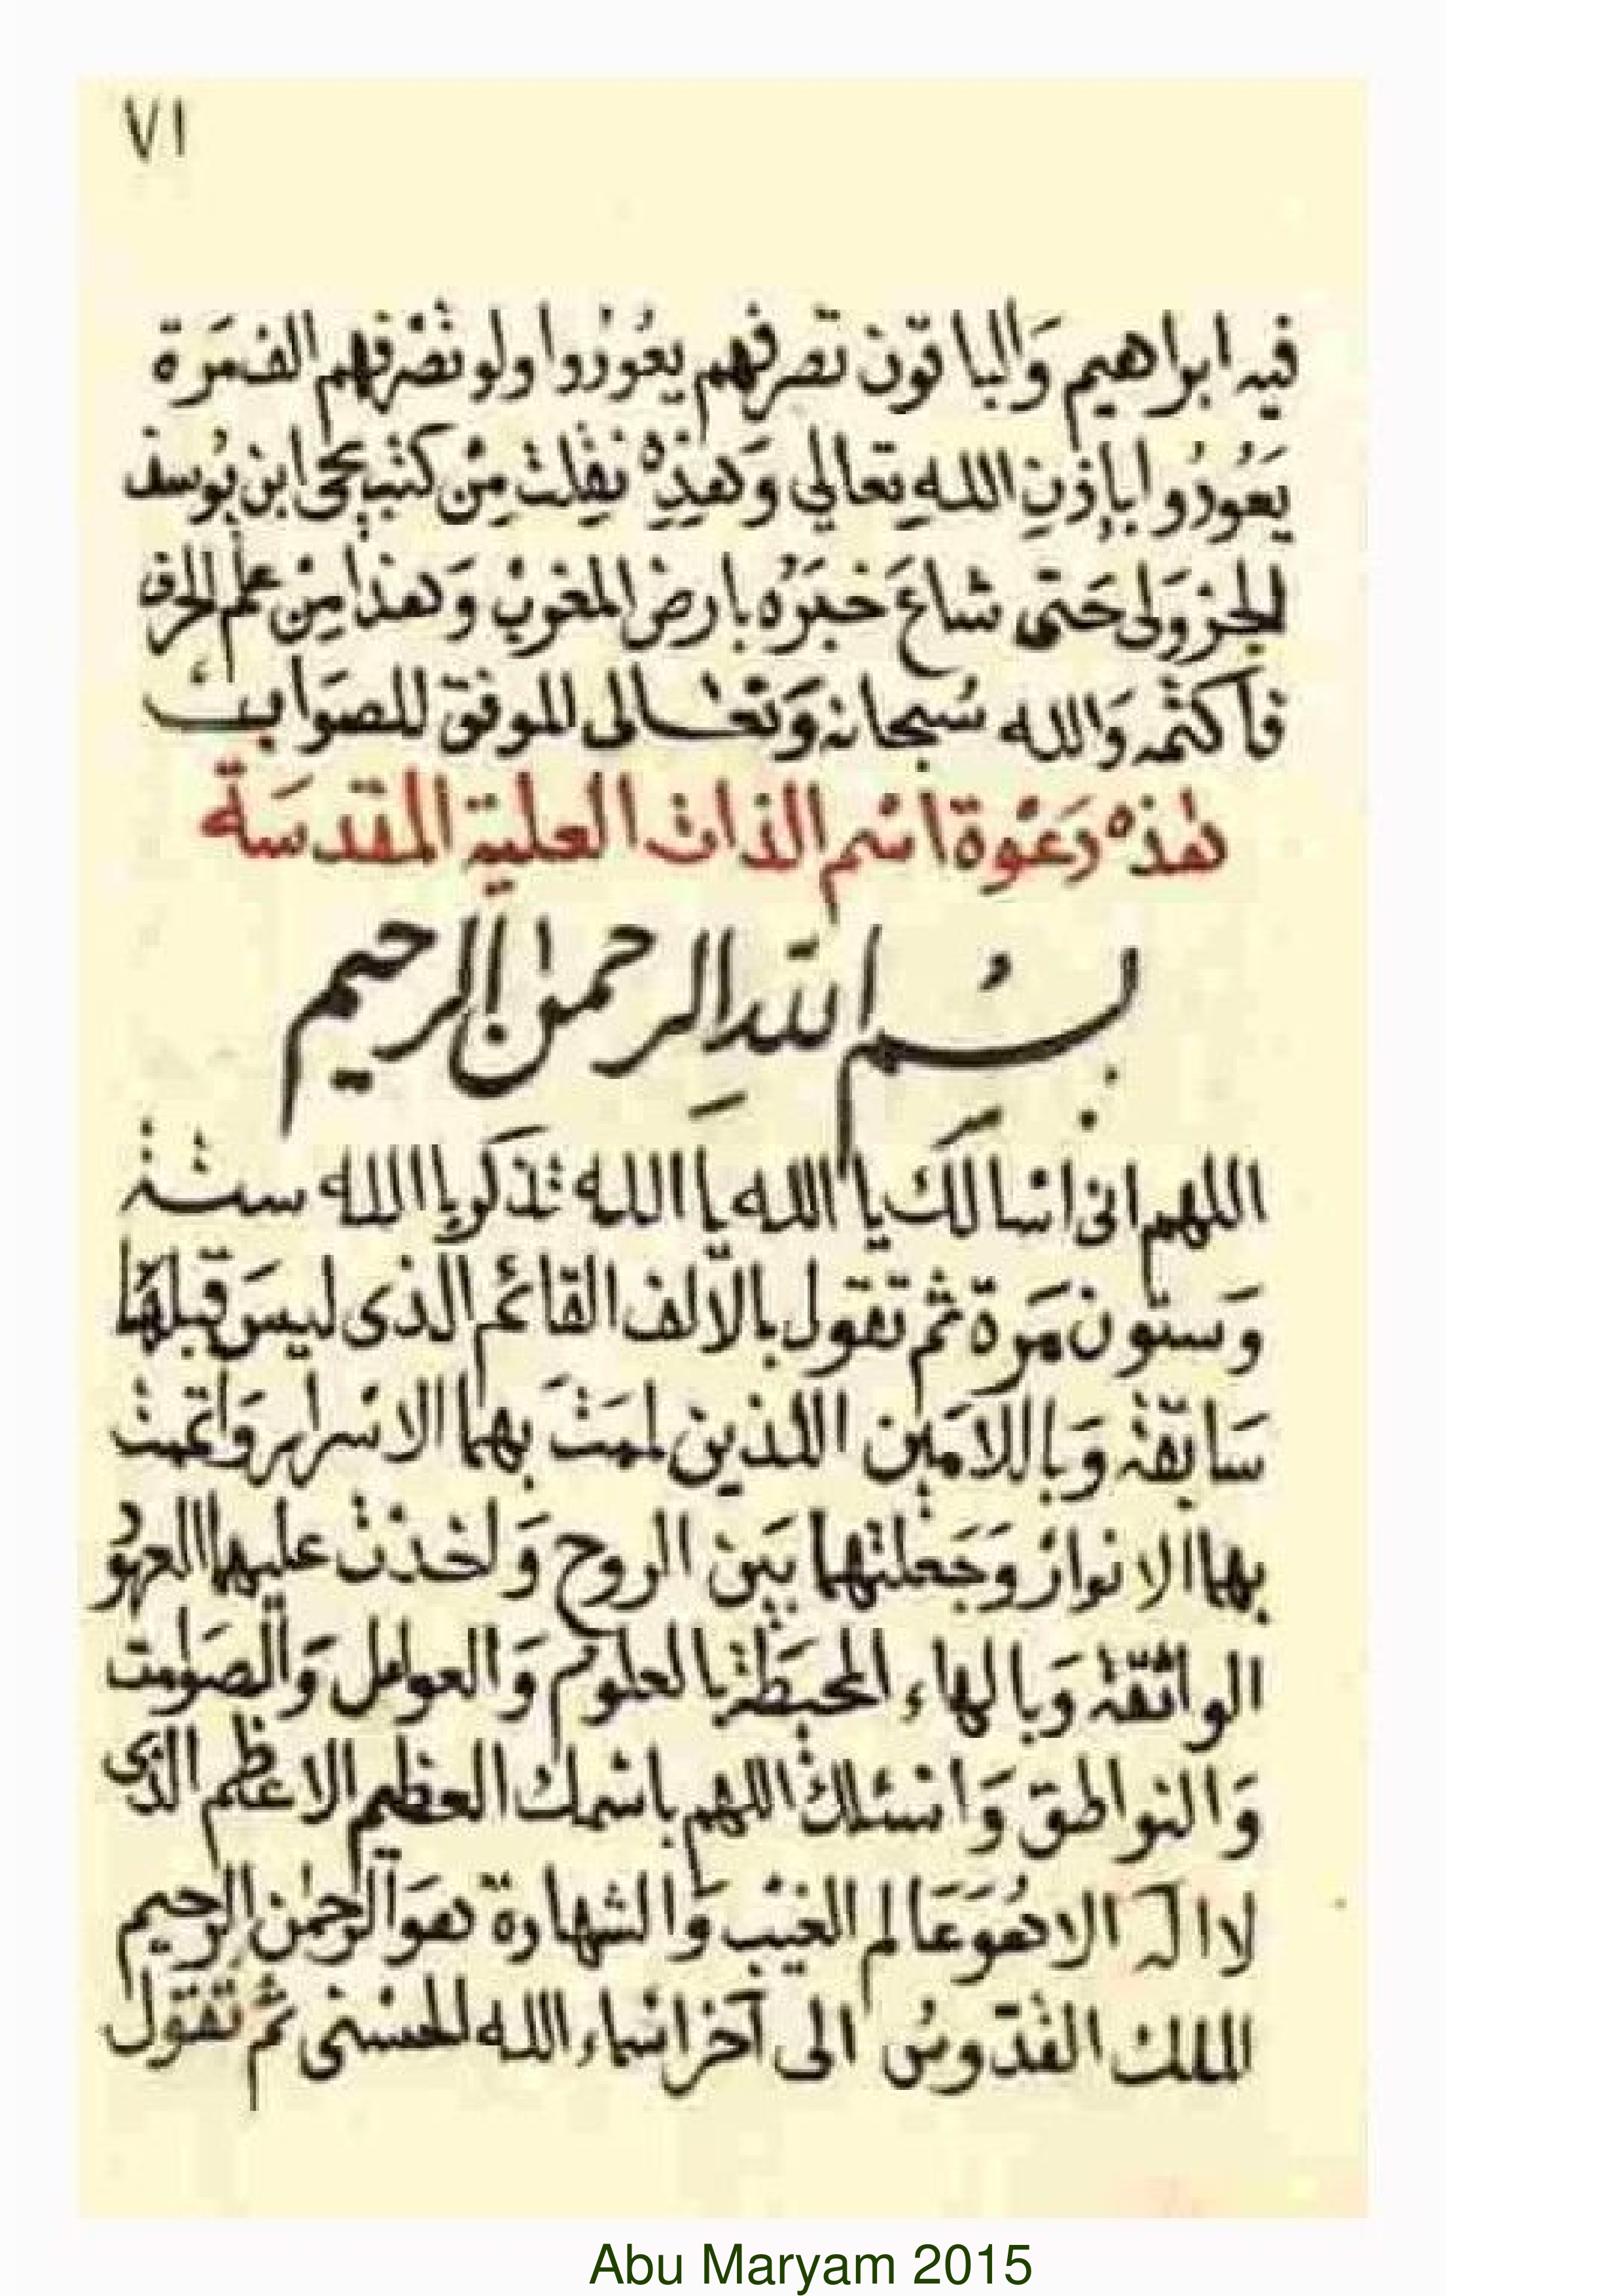 ٧١
فيه ابراهيم والباقون تصرفهم يعودوا ولو تصرفهم الف مرة
يعودوا باذن الله تعالي وهذه نقلت من كتب يحى ابن يوسف
الجزولى حتى شاع خبره بارض المغرب وهذا من علم الحرف
فاكتمه والله سبحانه وتعالى الموفق للصواب
هذه دعوة اسم الذات العلية المقدسة
بسم الله الرحمن الرحيم
اللهم انى اسالك يا الله يا الله تذكر يا الله ستة
وستون مرة ثم تقول بالالف القائم الذى ليس قبلها
سابقة وباللامين اللذين لممت بهما الاسرار واتممت
بهما الانوار وجعلتهما بين الروح واخذت عليهما العهود
الواثقة وبالهاء المحيطة بالعلوم والعوامل والصوامت
والنواطق وانسئلك اللهم باسمك العظيم الاعظم الذى
لا اله الا هو عالم الغيب والشهادة هو الرحمن الرحيم
الملك القدوس الى آخر اسماء الله الحسنى ثم تقول
Abu Maryam 2015